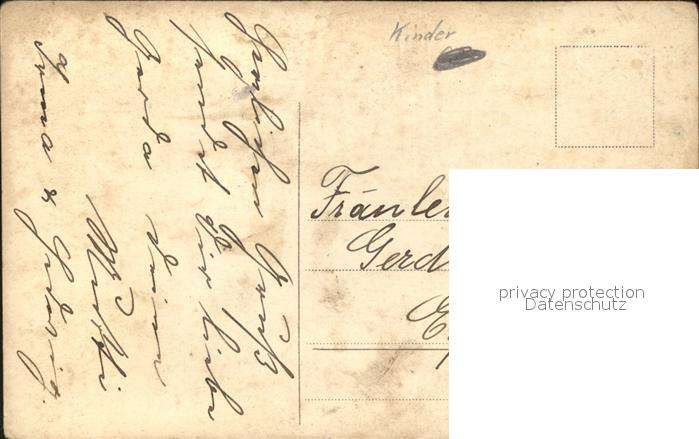 Kinder
Herzlichen Gruß
sendet Dir liebe
Gerda deine
Mutti
Irma & Hedwig.
Fräulei
Gerd
privacy protection
Datenschutz